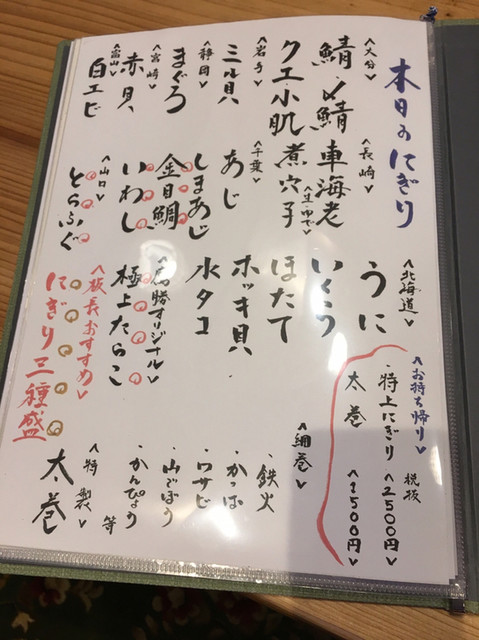 本日のにぎり
<大分>
鯖・〆鯖
<長崎>
車海老
<生・ゆで>
クエ・小肌
煮穴子
<岩手>
ミル貝
<千葉>
あじ
<静岡>
まぐろ
しまあじ
<宮崎>
赤貝
金目鯛
<富山>
白エビ
いわし
<山口>
とらふぐ
<北海道>
うに
いくら
ほたて
ホッキ貝
水タコ
オリジナル>
極上たらこ
<板長おすすめ>
にぎり三種盛
<お持ち帰り>
税抜
・特上にぎり <2500円>
太巻 <1500円>
<細巻>
・鉄火
・かっぱ
・ワサビ
・山ごぼう
・かんぴょう
等
<特製>
太巻